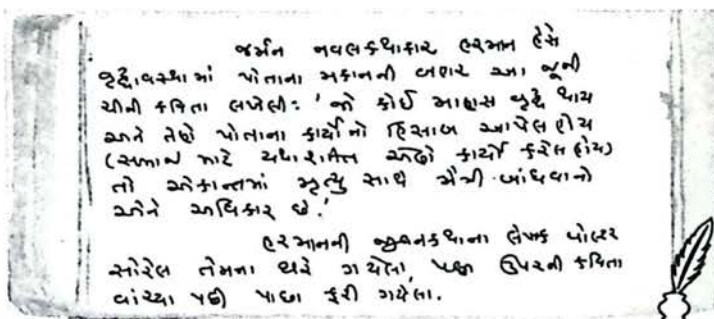 જર્મન નવલકથાકાર હરમાન હેસે
વૃદ્ધાવસ્થામાં પોતાના મકાનની બહાર આ જૂની
ચીની કવિતા લખેલી: 'જો કોઈ માણસ વૃદ્ધ થાય
અને તેણે પોતાના કાર્યોનો હિસાબ આપેલ હોય
(સમાજ માટે યથાશક્તિ એણે કાર્યો કરેલ હોય)
તો એકાન્તમાં મૃત્યુ સાથે મૈત્રી બાંધવાનો
એને અધિકાર છે.'
હરમાનની જીવનકથાના લેખક વોલ્ટર
સોરેલ તેમના ઘરે ગયેલા, પણ ઉપરની કવિતા
વાંચ્યા પછી પાછા ફરી ગયેલા.